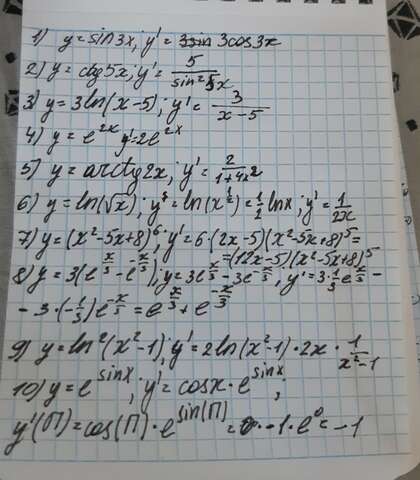 1) y=sin3x; y'= 3cos3x
2) y=ctg5x; y'= 5/sin²5x
3) y=3ln(x-5); y'= 3/(x-5)
4) y=e^(2x) y'=2e^(2x)
5) y=arctg2x; y'= 2/(1+4x²)
6) y=ln(√x); y=ln(x^(1/2))=1/2 lnx; y'= 1/(2x)
7) y=(x²-5x+8)⁶; y'=6·(2x-5)(x²-5x+8)⁵=
=(12x-5)(x²-5x+8)⁵
8) y=3(e^(x/3)-e^(-x/3)); y=3e^(x/3)-3e^(-x/3); y'=3·1/3 e^(x/3)-
-3·(-1/3)e^(-x/3)=e^(x/3)+e^(-x/3)
9) y=ln²(x²-1); y'=2ln(x²-1)·2x·1/(x²-1)
10) y=e^(sinx); y'=cosx·e^(sinx);
y'(П)=cos(П)·e^(sin(П))= -1·e⁰=-1